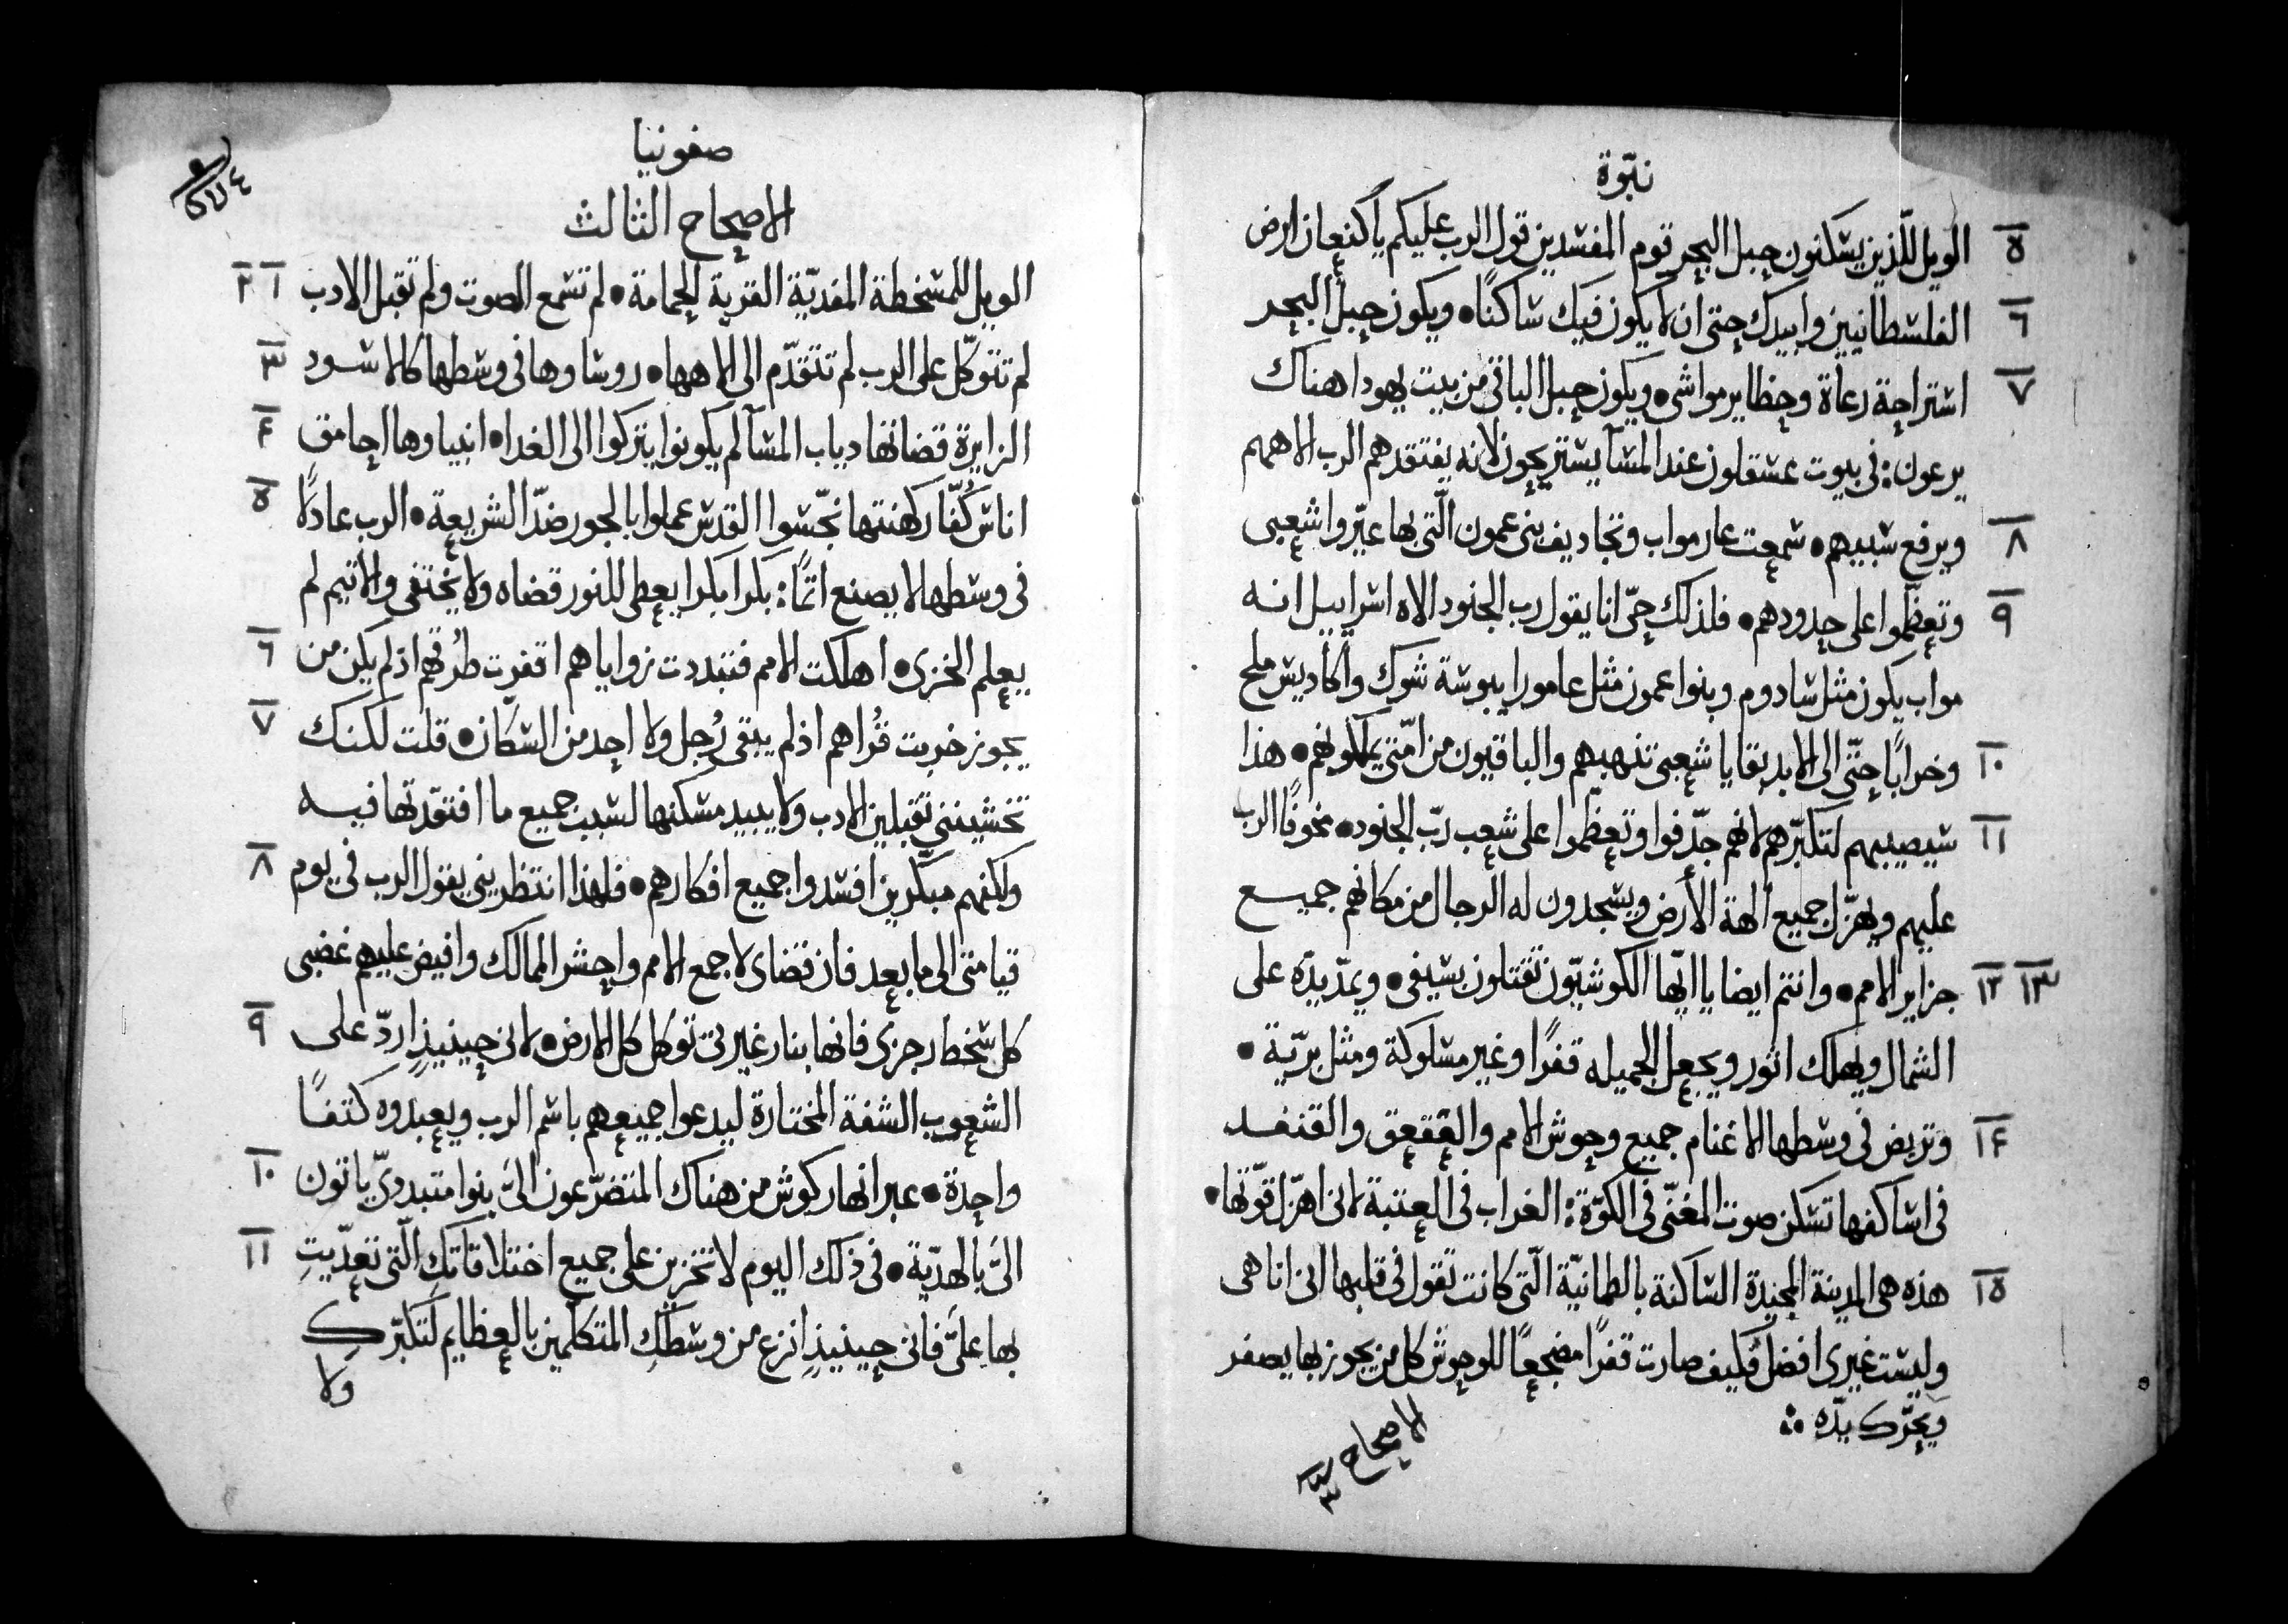 نبوّة
٥ الويل للّذين يسكنون حبل البحر قوم المفسدين قول الرب عليكم يا كنعان ارض
٦ الفلسطانيين وابيدك حتى ان لا يكون فيك ساكنًا • ويكون حبل البحر
٧ استراحة رعاة وحظاير مواشى • ويكون حبل الباقى من بيت يهودا هناك
يرعون : فى بيوت عسقلون عند المسآ يستريحون لانه يفتقدهم الرب الاههم
٨ ويرفع سبيهم • سمعت عار مواب وتجاديف بنى عمون الّتى بها عيّروا شعبى
٩ وتعظّموا على حدودهم • فلذلك حىّ انا يقول رب الجنود الاه اسراييل انه
مواب يكون مثل سادوم وبنوا عمون مثل عامورا يبوسة شوك واكاديس ملح
١٠ وخرابًا حتّى الى الابد بقايا شعبى تنهبهم والباقيون من امّتى يملكونهم • هذا
١١ سيصيبهم لتكبّرهم لانهم جدّفوا وتعظّموا على شعب ربّ الجنود • مخوفًا الرب
عليهم ويهزّل جميع الهة الأرض ويسجدون له الرجال من مكانهم جميع
١٢ ١٣ جزاير الامم • وانتم ايضا يا ايّها الكوشيّون تقتلون بسيفى • ويمدّ يدّه على
الشمال ويهلك اثور ويجعل الجميله قفرًا وغير مسلوكة ومثل بريّة •
١٤ وتربض فى وسطها الاغنام جميع وحوش الامم والقعقعق والقنفد
فى اساكفها تسكن صوت المغنّى فى الكوّة : الغراب فى العتبة لانى اهزّل قوّتها •
١٥ هذه هى المدينة المجيدة الساكنة بالطمانيّة الّتى كانت تقول فى قلبها انى انا هى
وليست غيرى افضل فكيف صارت قفرًا مضجعًا للوحوش كل من يجوز بها يصفر
ويحرّك يدّه
الاصحاح ٣
صفونيا
الاصحاح الثالث
١ ٢ الويل للمسخطة المفديّة القرية الحمامة • لم تسمع الصوت ولم تقبل الادب
٣ لم تتوكّل على الرب لم تتقدّم الى الاهها • روساوها فى وسطها كالاسود
٤ الزايرة قضاتها دياب المسآ لم يكونوا يتركوا الى الغدا • انبياوها احامق
٥ اناس كُفّار كهنتها نجّسوا القدس عملوا بالجور ضدّ الشريعة • الرب عادلًا
فى وسطها لا يصنع اثمًا : بكرا بكرا يعطى للنور قضاه ولا يختفى والاثيم لم
٦ يعلم الخزى • اهلكت الامم فتبددت زواياهم اقفرت طرُقهم اذ لم يكن من
٧ يجوز خربت قُراهم اذ لم يبقى رُجل ولا احد من السكّان • قلت لكنك
تخشيننى تقبلين الادب ولا يبيد مسكنها لسبب جميع ما افتقدّتها فيه
٨ ولكنهم مبكّرين افسدوا جميع افكارهم • فلهذا انتظرينى يقول الرب فى يوم
قيامتى الى ما بعد فان قضاى لاجمع الامم واحشر الممالك وافيض عليهم غضبى
٩ كل سخط رجزى فانها بنار غيرتى توكل كل الارض • لانى حينيذٍ اردّ على
الشعوب الشفة المختارة ليدعوا جميعهم باسم الرب ويعبدوه كتفًا
١٠ واحدة • عبر انهار كوش من هناك المتضرّعون الىّ بنوا متبدوىّ ياتون
١١ الىّ بالهديّة • فى ذلك اليوم لا تخزين على جميع اختلاقاتكِ الّتى تعدّيتِ
بها علىّ فانى حينيذٍ انزع من وسطكِ المتكلمين بالعظايم لتكبّركِ
ولا